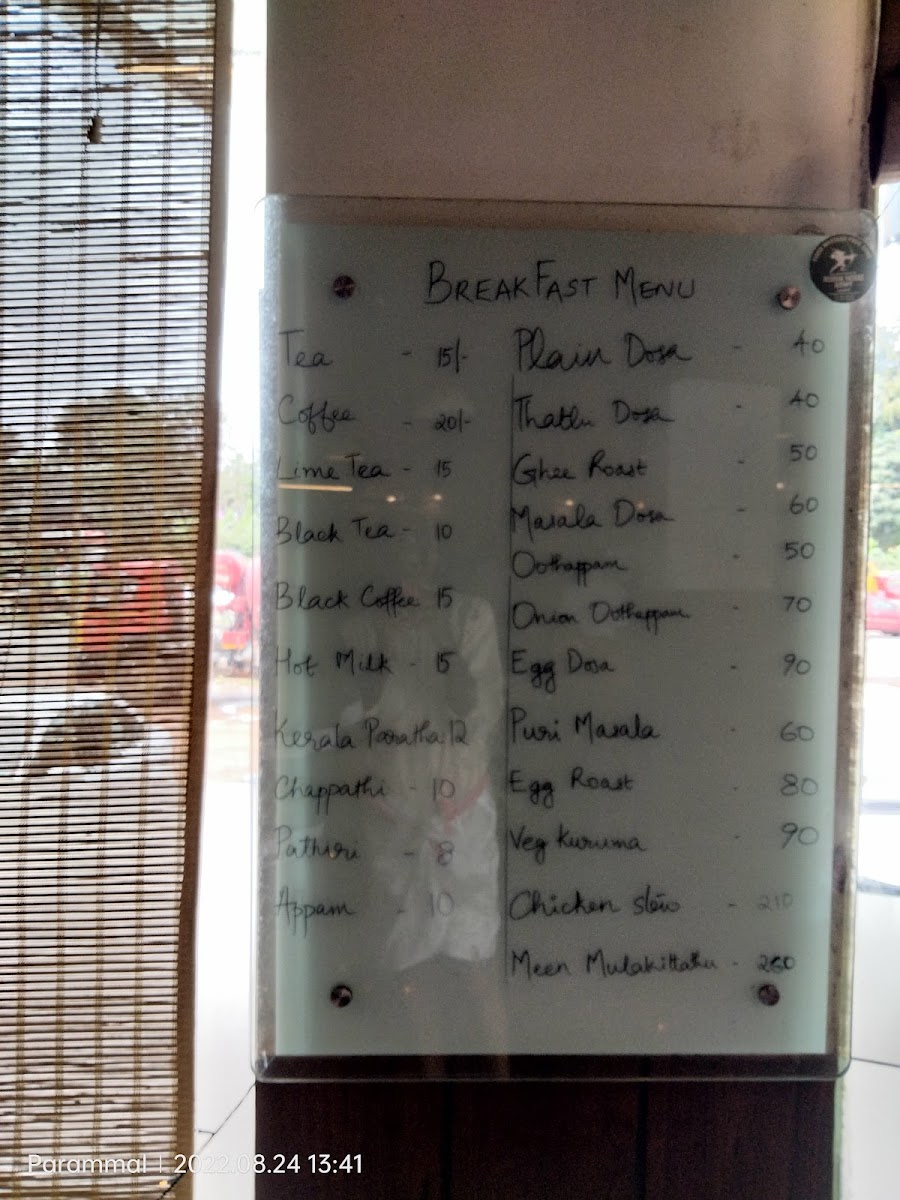 BREAKFAST MENU
Tea - 15/-
Coffee - 20/-
Lime Tea - 15
Black Tea - 10
Black Coffee 15
Hot Milk - 15
Kerala Paratha 12
Chappathi - 10
Pathiri - 8
Appam - 10
Plain Dosa - 40
Thattu Dosa - 40
Ghee Roast - 50
Masala Dosa - 60
Oothappam - 50
Onion Oothappam - 70
Egg Dosa - 90
Puri Masala - 60
Egg Roast - 80
Veg Kuruma - 90
Chicken stew - 210
Meen Mulakittathu - 260
Parammal | 2022.08.24 13:41